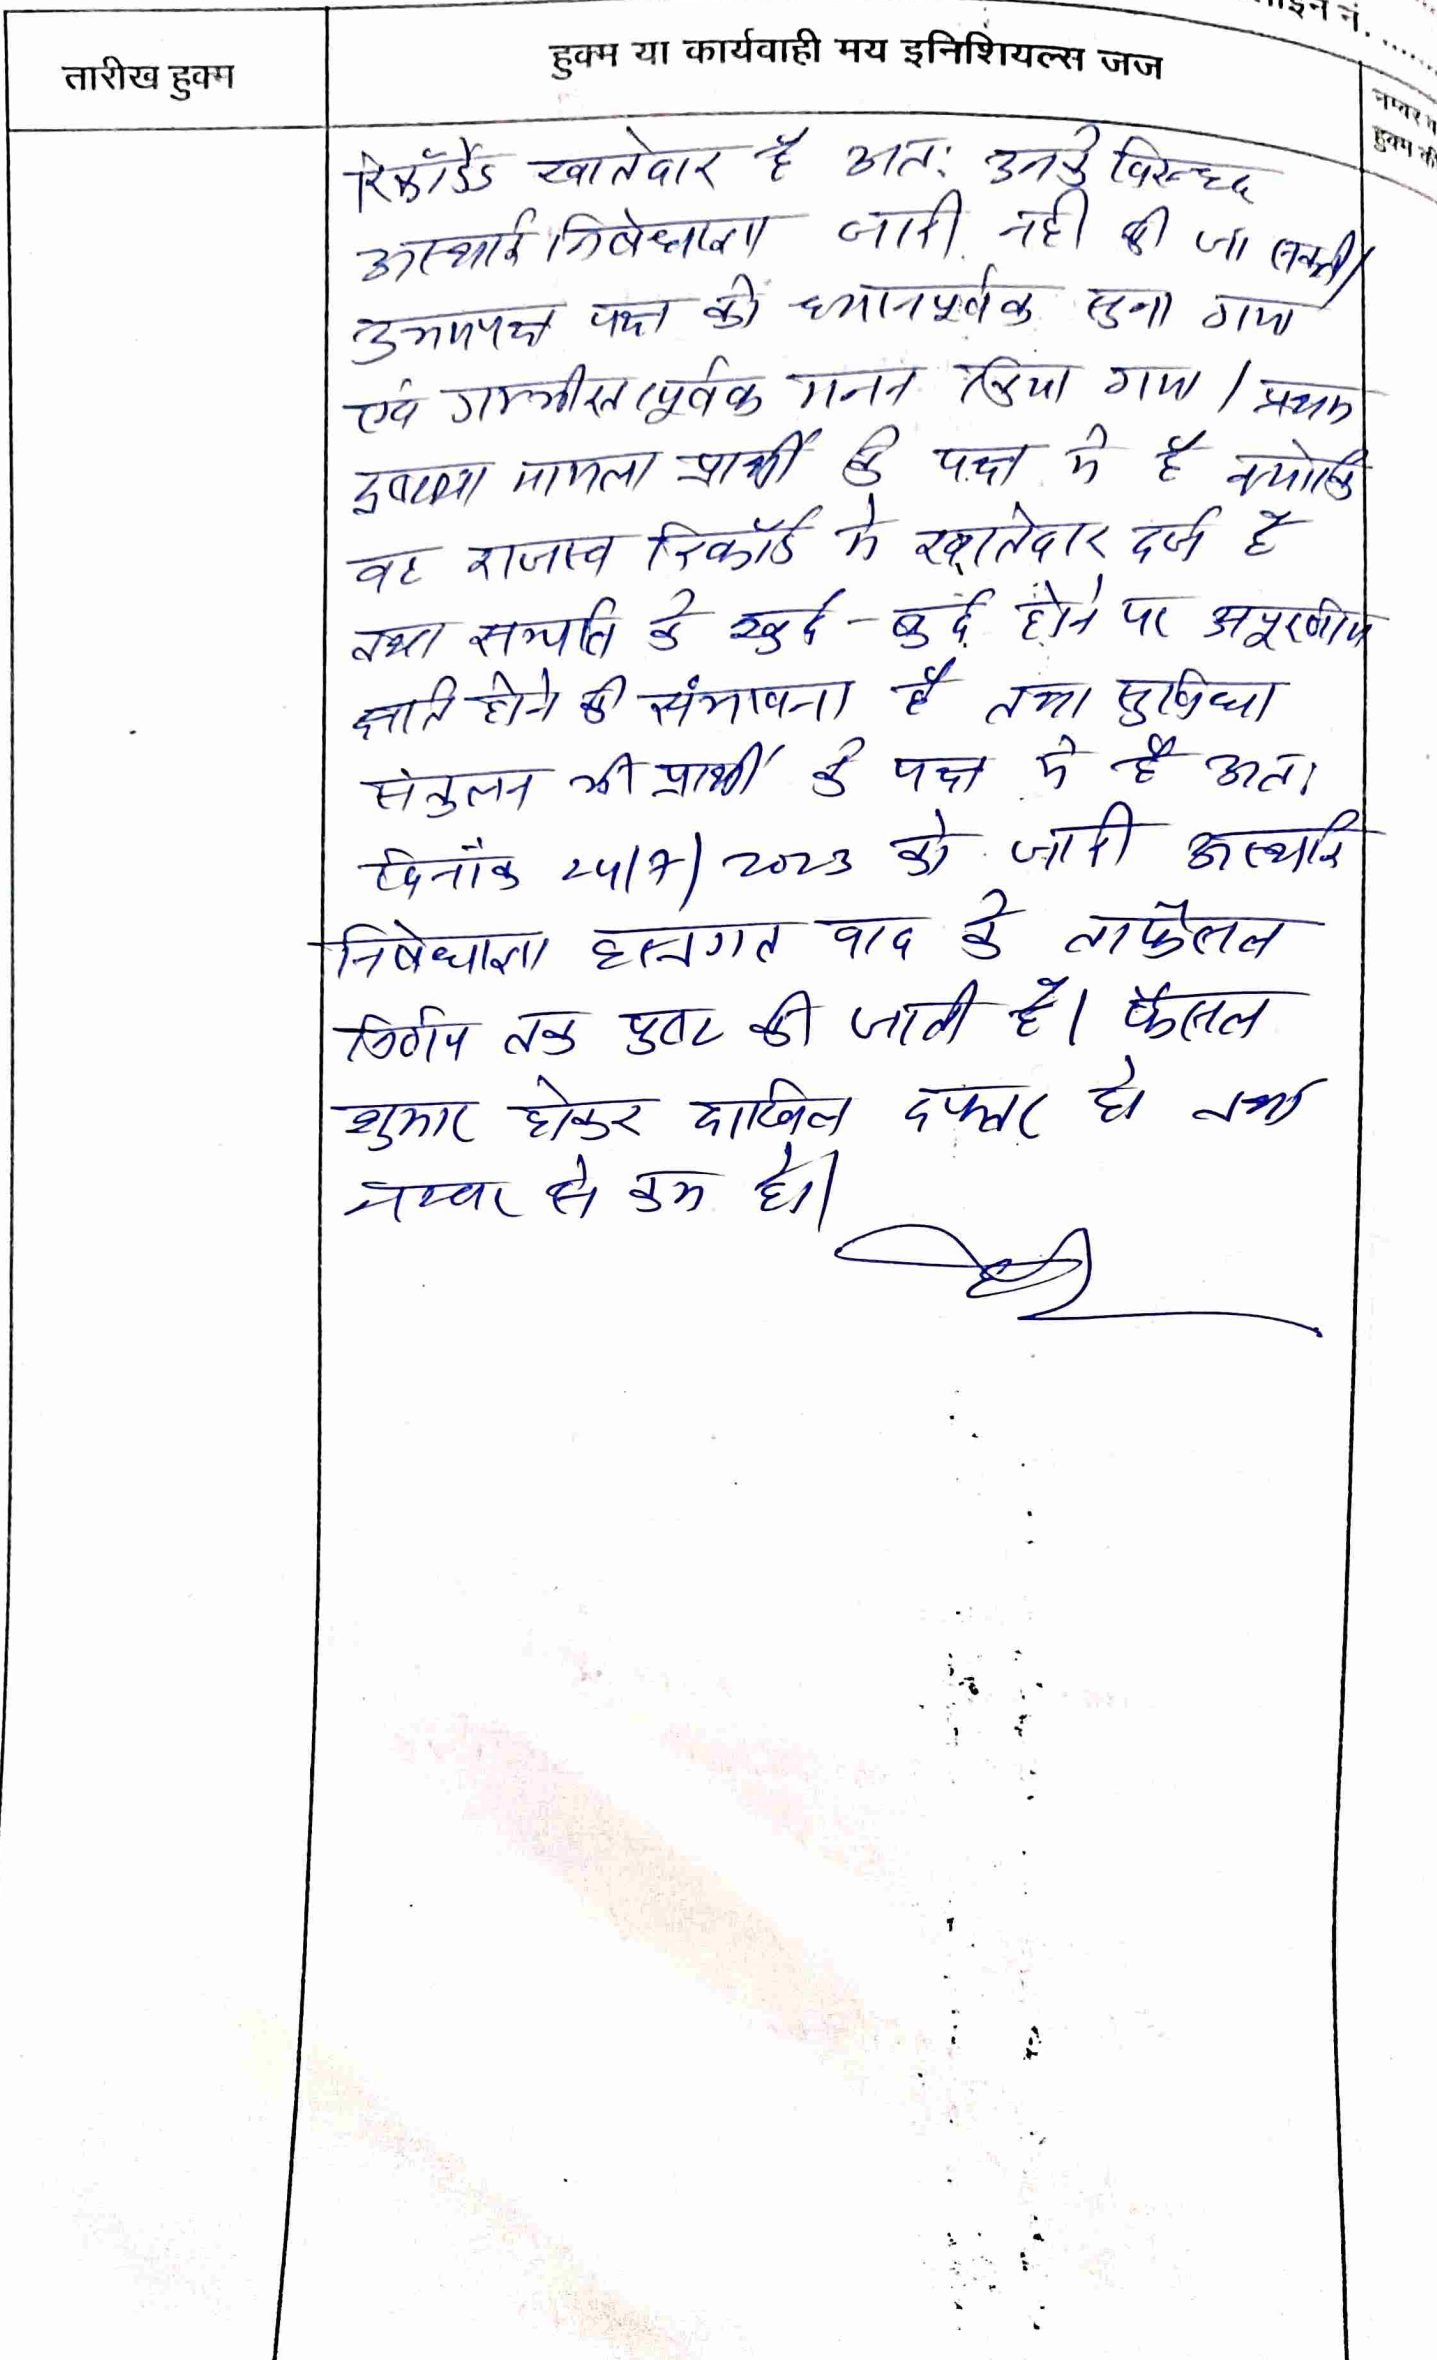 हुक्म या कार्यवाही मय इनिशियल्स जज
तारीख हुक्म
रिकॉर्डेड खातेदार है अतः उनके विरूद्ध
अस्थाई निषेधाज्ञा जारी नही की जा सकती।
उभयपक्ष पक्ष को ध्यानपूर्वक सुना गया
एवं गम्भीरतापूर्वक मनन किया गया। प्रथम
दृष्टया मामला प्रार्थी के पक्ष मे है क्योकि
वह राजस्व रिकॉर्ड मे खातेदार दर्ज है
तथा सम्पति के खुर्द-बुर्द होने पर अपूरणीय
क्षति होने की संभावना है तथा सुविधा
संतुलन भी प्रार्थी के पक्ष मे है अतः
दिनाँक 24/7/2023 को जारी अस्थाई
निषेधाज्ञा हस्तगत वाद के ताफैसल
निर्णय तक पुष्ट की जाती है। फैसल
शुमार होकर दाखिल दफ्तर हो तथा
नम्बर से कम हो।